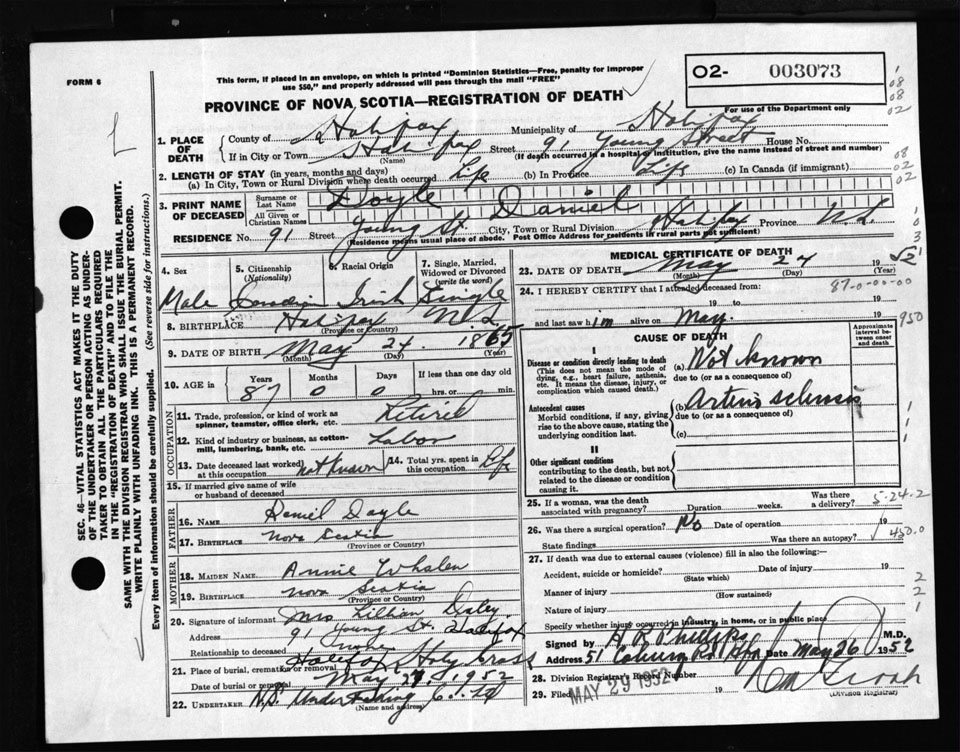 FORM 6
This form, if placed in an envelope, on which is printed "Dominion Statistics—Free, penalty for improper
use $50," and properly addressed will pass through the mail "FREE"
PROVINCE OF NOVA SCOTIA—REGISTRATION OF DEATH
02- 003073
For use of the Department only
1. PLACE OF DEATH
County of Halifax Municipality of Halifax
If in City or Town Halifax Street 91 Young Street House No.
(Name) (If death occurred in a hospital or institution, give the name instead of street and number)
2. LENGTH OF STAY (in years, months and days)
(a) In City, Town or Rural Division where death occurred Life (b) In Province Life (c) In Canada (if immigrant)
3. PRINT NAME OF DECEASED
Surname or Last Name Doyle
All Given or Christian Names Daniel
RESIDENCE No. 91 Street Young St. City, Town or Rural Division Halifax Province N.S.
(Residence means usual place of abode. Post Office Address for residents in rural parts not sufficient)
4. Sex
5. Citizenship (Nationality)
6. Racial Origin
7. Single, Married, Widowed or Divorced (write the word)
Male Canadian Irish Single
8. BIRTHPLACE Halifax N.S.
(Province or Country)
9. DATE OF BIRTH May 24. 1865
(Month) (Day) (Year)
10. AGE in Years Months Days If less than one day old
87 0 0 hrs. or min.
OCCUPATION
11. Trade, profession, or kind of work as
spinner, teamster, office clerk, etc. Retired
12. Kind of industry or business, as cotton-
mill, lumbering, bank, etc. Labor
13. Date deceased last worked at this occupation not known
14. Total yrs. spent in this occupation Life
15. If married give name of wife
or husband of deceased
FATHER
16. NAME Daniel Doyle
17. BIRTHPLACE Nova Scotia
(Province or Country)
MOTHER
18. MAIDEN NAME Annie Whalen
19. BIRTHPLACE Nova Scotia
(Province or Country)
20. Signature of informant Mrs Lillian Daley
Address 91 Young St. Halifax
Relationship to deceased
21. Place of burial, cremation or removal Halifax Holy Cross
Date of burial or removal May 1952
22. UNDERTAKER N.S. Undertaking
(Name and address)
MEDICAL CERTIFICATE OF DEATH
23. DATE OF DEATH May 24 1952
(Month) (Day) (Year)
24. I HEREBY CERTIFY that I attended deceased from:
87-0-00-00
19 to 19
and last saw him alive on May. 1950
CAUSE OF DEATH
Approximate interval between onset and death
I
Disease or condition directly leading to death
(This does not mean the mode of
dying, e.g., heart failure, asthenia,
etc. It means the disease, injury, or
complication which caused death.)
(a) Not known
due to (or as a consequence of)
Antecedent causes
Morbid conditions, if any, giving
rise to the above cause, stating the
underlying condition last.
(b) Arterio sclerosis
due to (or as a consequence of)
(c)
II
Other significant conditions
contributing to the death, but not
related to the disease or condition
causing it.
25. If a woman, was the death
associated with pregnancy? Duration weeks. Was there a delivery?
5-24-2
26. Was there a surgical operation? No Date of operation 19
State findings Was there an autopsy?
450.0
27. If death was due to external causes (violence) fill in also the following:
Accident, suicide or homicide? Date of injury 19
(State which)
Manner of injury
(How sustained)
Nature of injury
Specify whether injury occurred in industry, in home, or in public place
Signed by M.D.
Address 51 Date May 26 1952
28. Division Registrar's Record Number
29. Filed MAY 29 1952 19
(Division Registrar)
SEC. 46—VITAL STATISTICS ACT MAKES IT THE DUTY
OF THE UNDERTAKER OR PERSON ACTING AS UNDER-
TAKER TO OBTAIN ALL THE PARTICULARS REQUIRED
IN THE "REGISTRATION OF DEATH" AND TO FILE THE
SAME WITH THE DIVISION REGISTRAR WHO SHALL ISSUE THE BURIAL PERMIT.
WRITE PLAINLY WITH UNFADING INK. THIS IS A PERMANENT RECORD.
Every item of information should be carefully supplied. (See reverse side for instructions.)